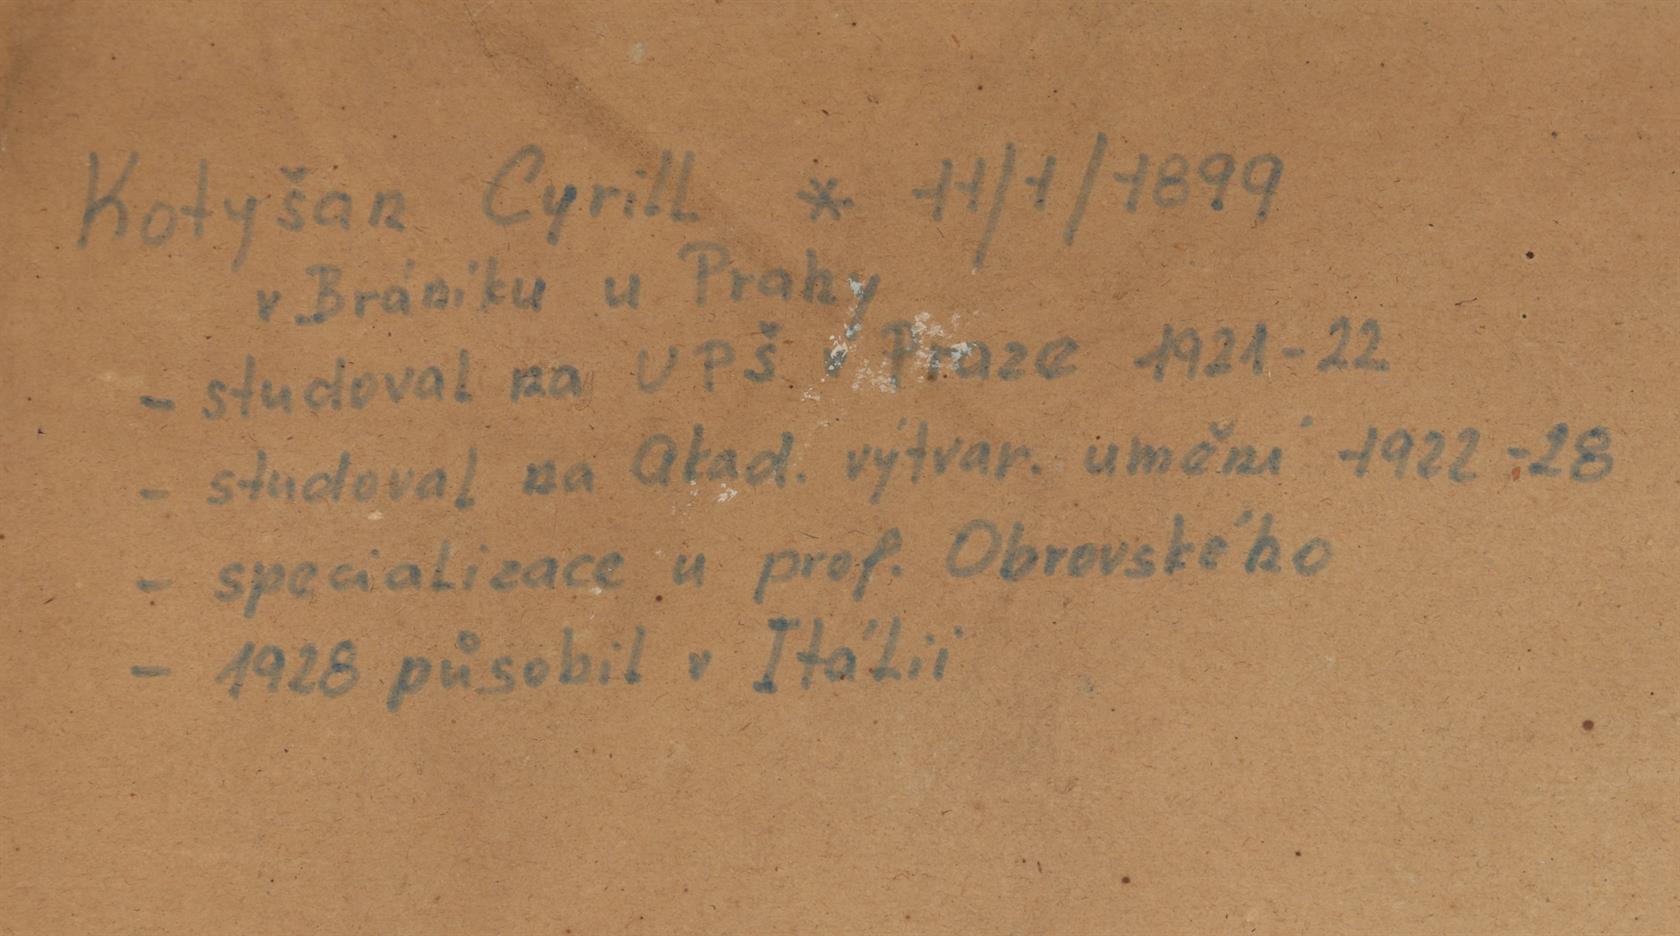 Kotyšan Cyrill * 11/1/1899
v Brániku u Prahy
- studoval na UPŠ v Praze 1921-22
- studoval na Akad. výtvar. umění 1922-28
- specializace u prof. Obrovského
- 1928 působil v Itálii